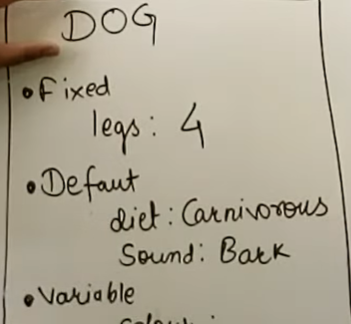 DOG
• Fixed
legs: 4
• Defaut
diet: Carnivorous
Sound: Bark
• Variable